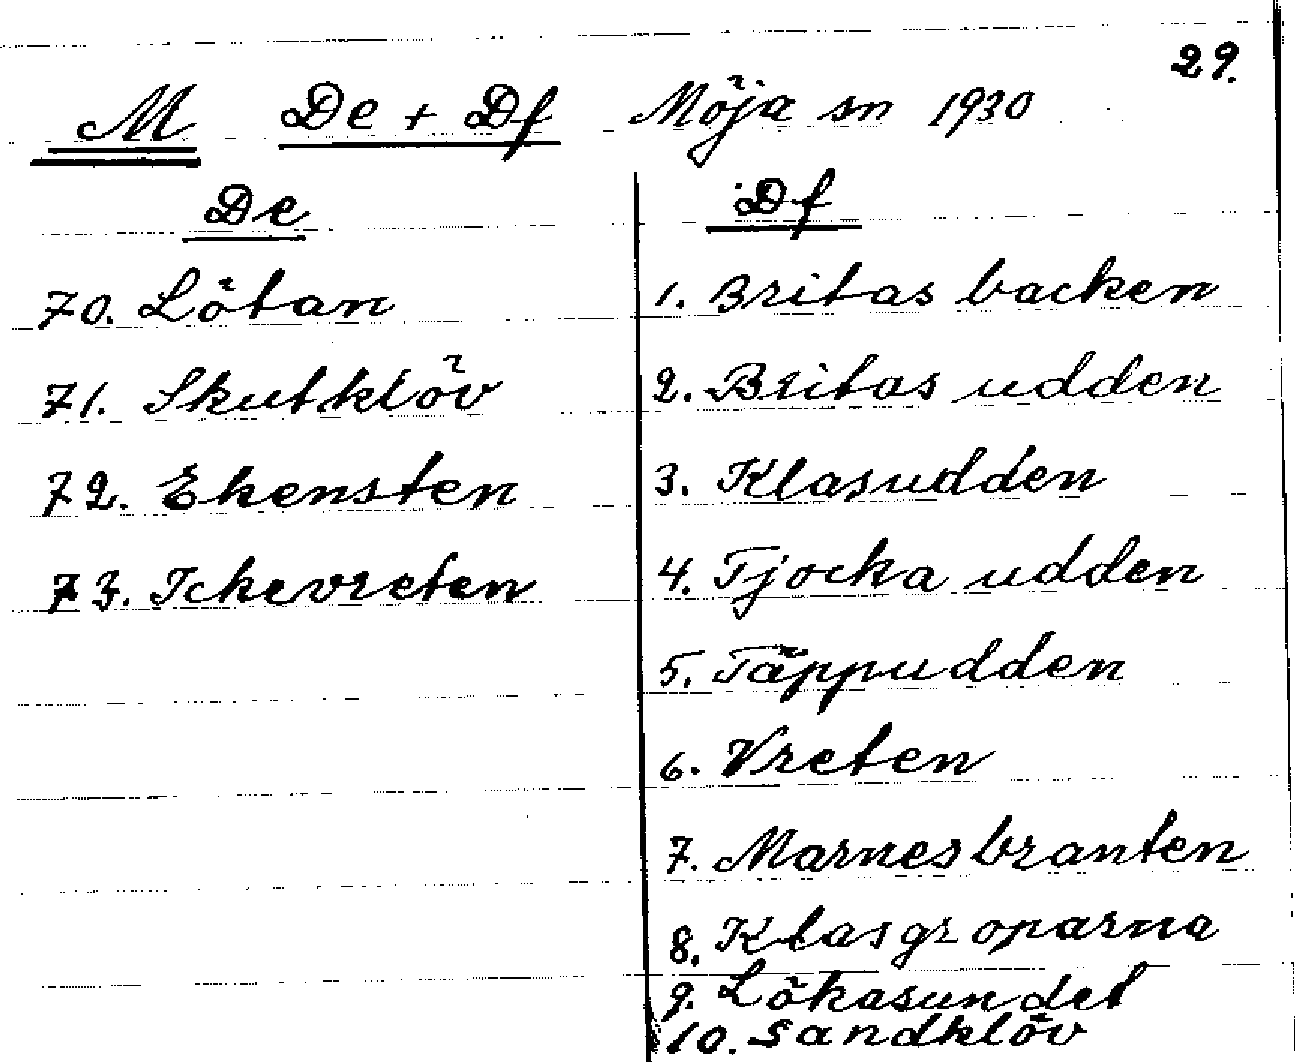 29.
M De + Df Möja sn 1930
De
70. Lötan
71. Skutklöv
72. Ekensten
73. Ickevreten
Df
1. Britas backen
2. Britas udden
3. Klasudden
4. Tjocka udden
5. Täppudden
6. Vreten
7. Marnesbranten
8. Klasgroparna
9. Lökasundet
10. Sandklöv